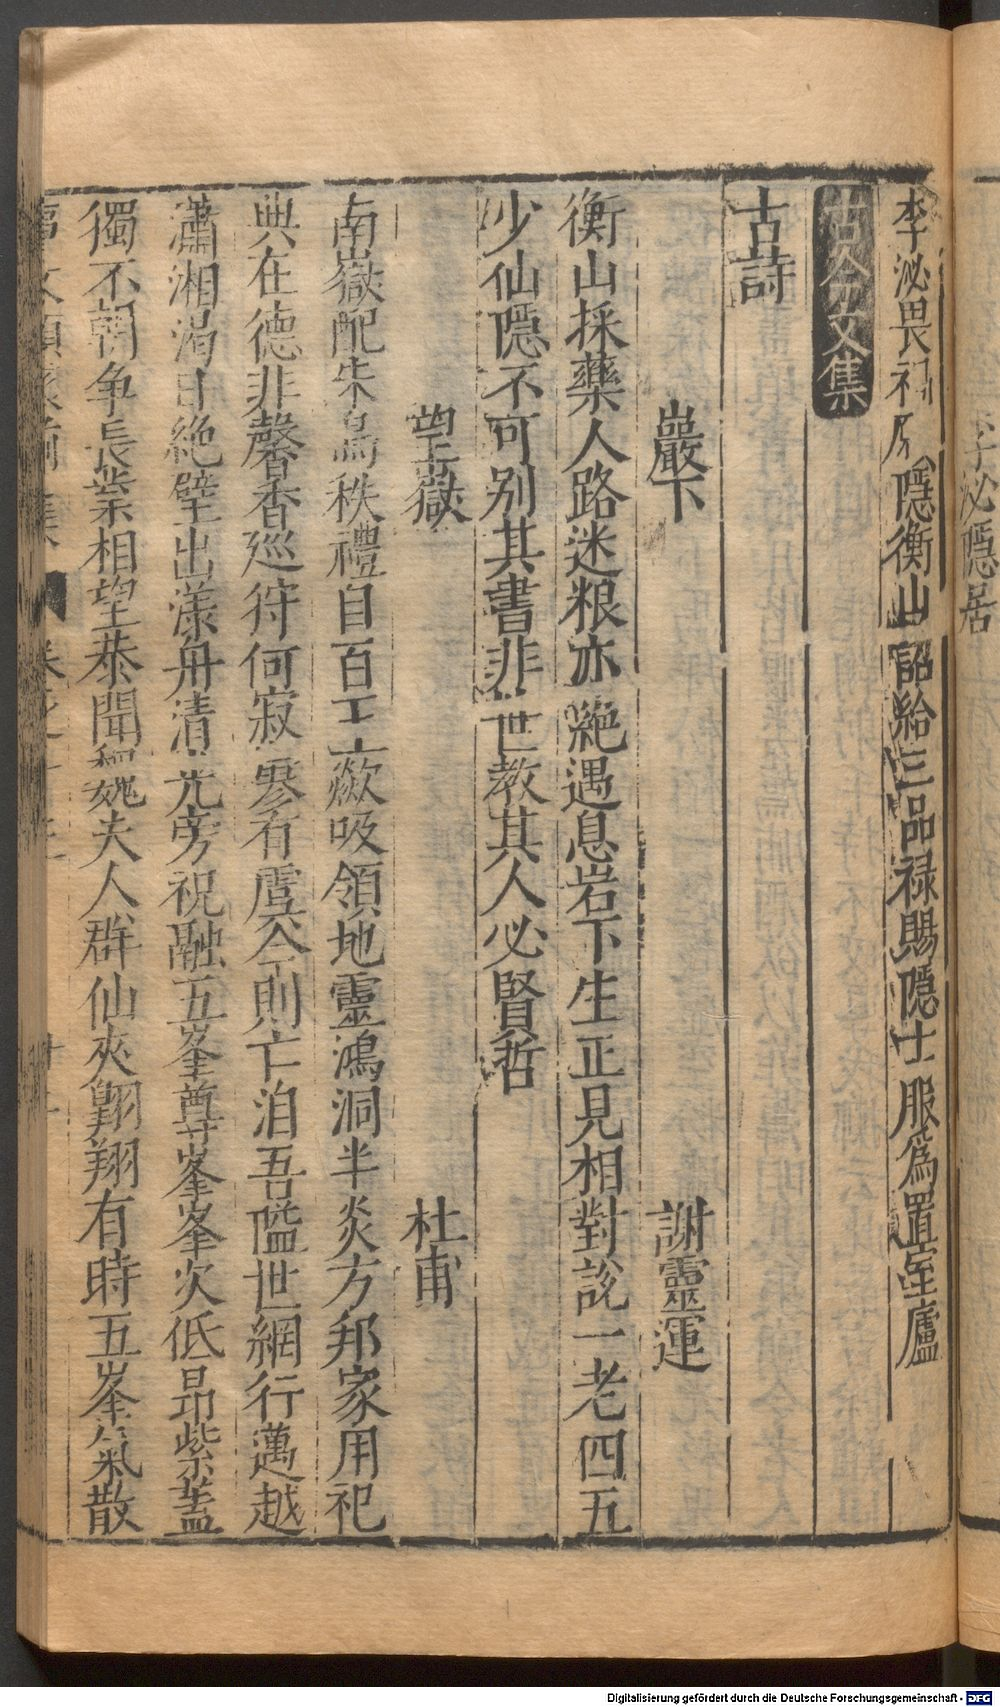 李泌隱居
李泌畏禍隱衡山詔給三品祿賜隱士服為置室廬
古今文集
古詩
巖下　謝靈運
衡山採藥人路迷粮亦絶遇息岩下生正見相對說一老四五
少仙隱不可别其書非世教其人必賢哲
望嶽　杜甫
南嶽配朱鳥秩禮自百王歘吸領地靈鴻洞半炎方邦家用祀
典在德非馨香巡狩何寂寥有虞今則亡洎吾隘世網行邁越
瀟湘渴日絶壁出漾舟清光旁祝融五峯尊峯峯次低昻紫蓋
獨不朝争長嶪相望恭聞魏夫人群仙夾翺翔有時五峯氣散
Digitalisierung gefördert durch die Deutsche Forschungsgemeinschaft - DFG